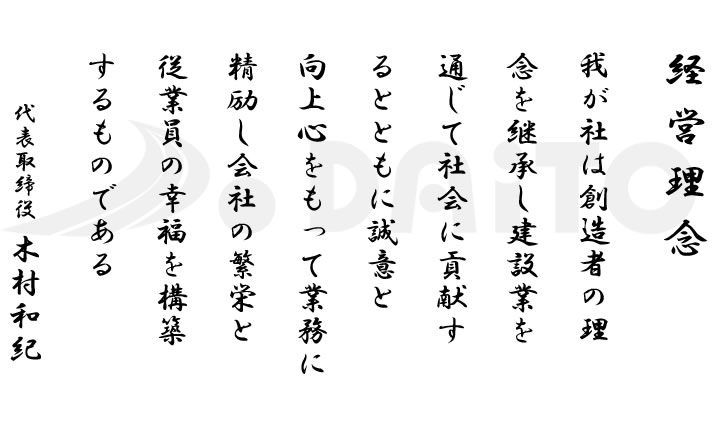 経営理念
我が社は創造者の理
念を継承し建設業を
通じて社会に貢献す
るとともに誠意と
向上心をもって業務に
精励し会社の繁栄と
従業員の幸福を構築
するものである
代表取締役 木村和紀
DAiTO